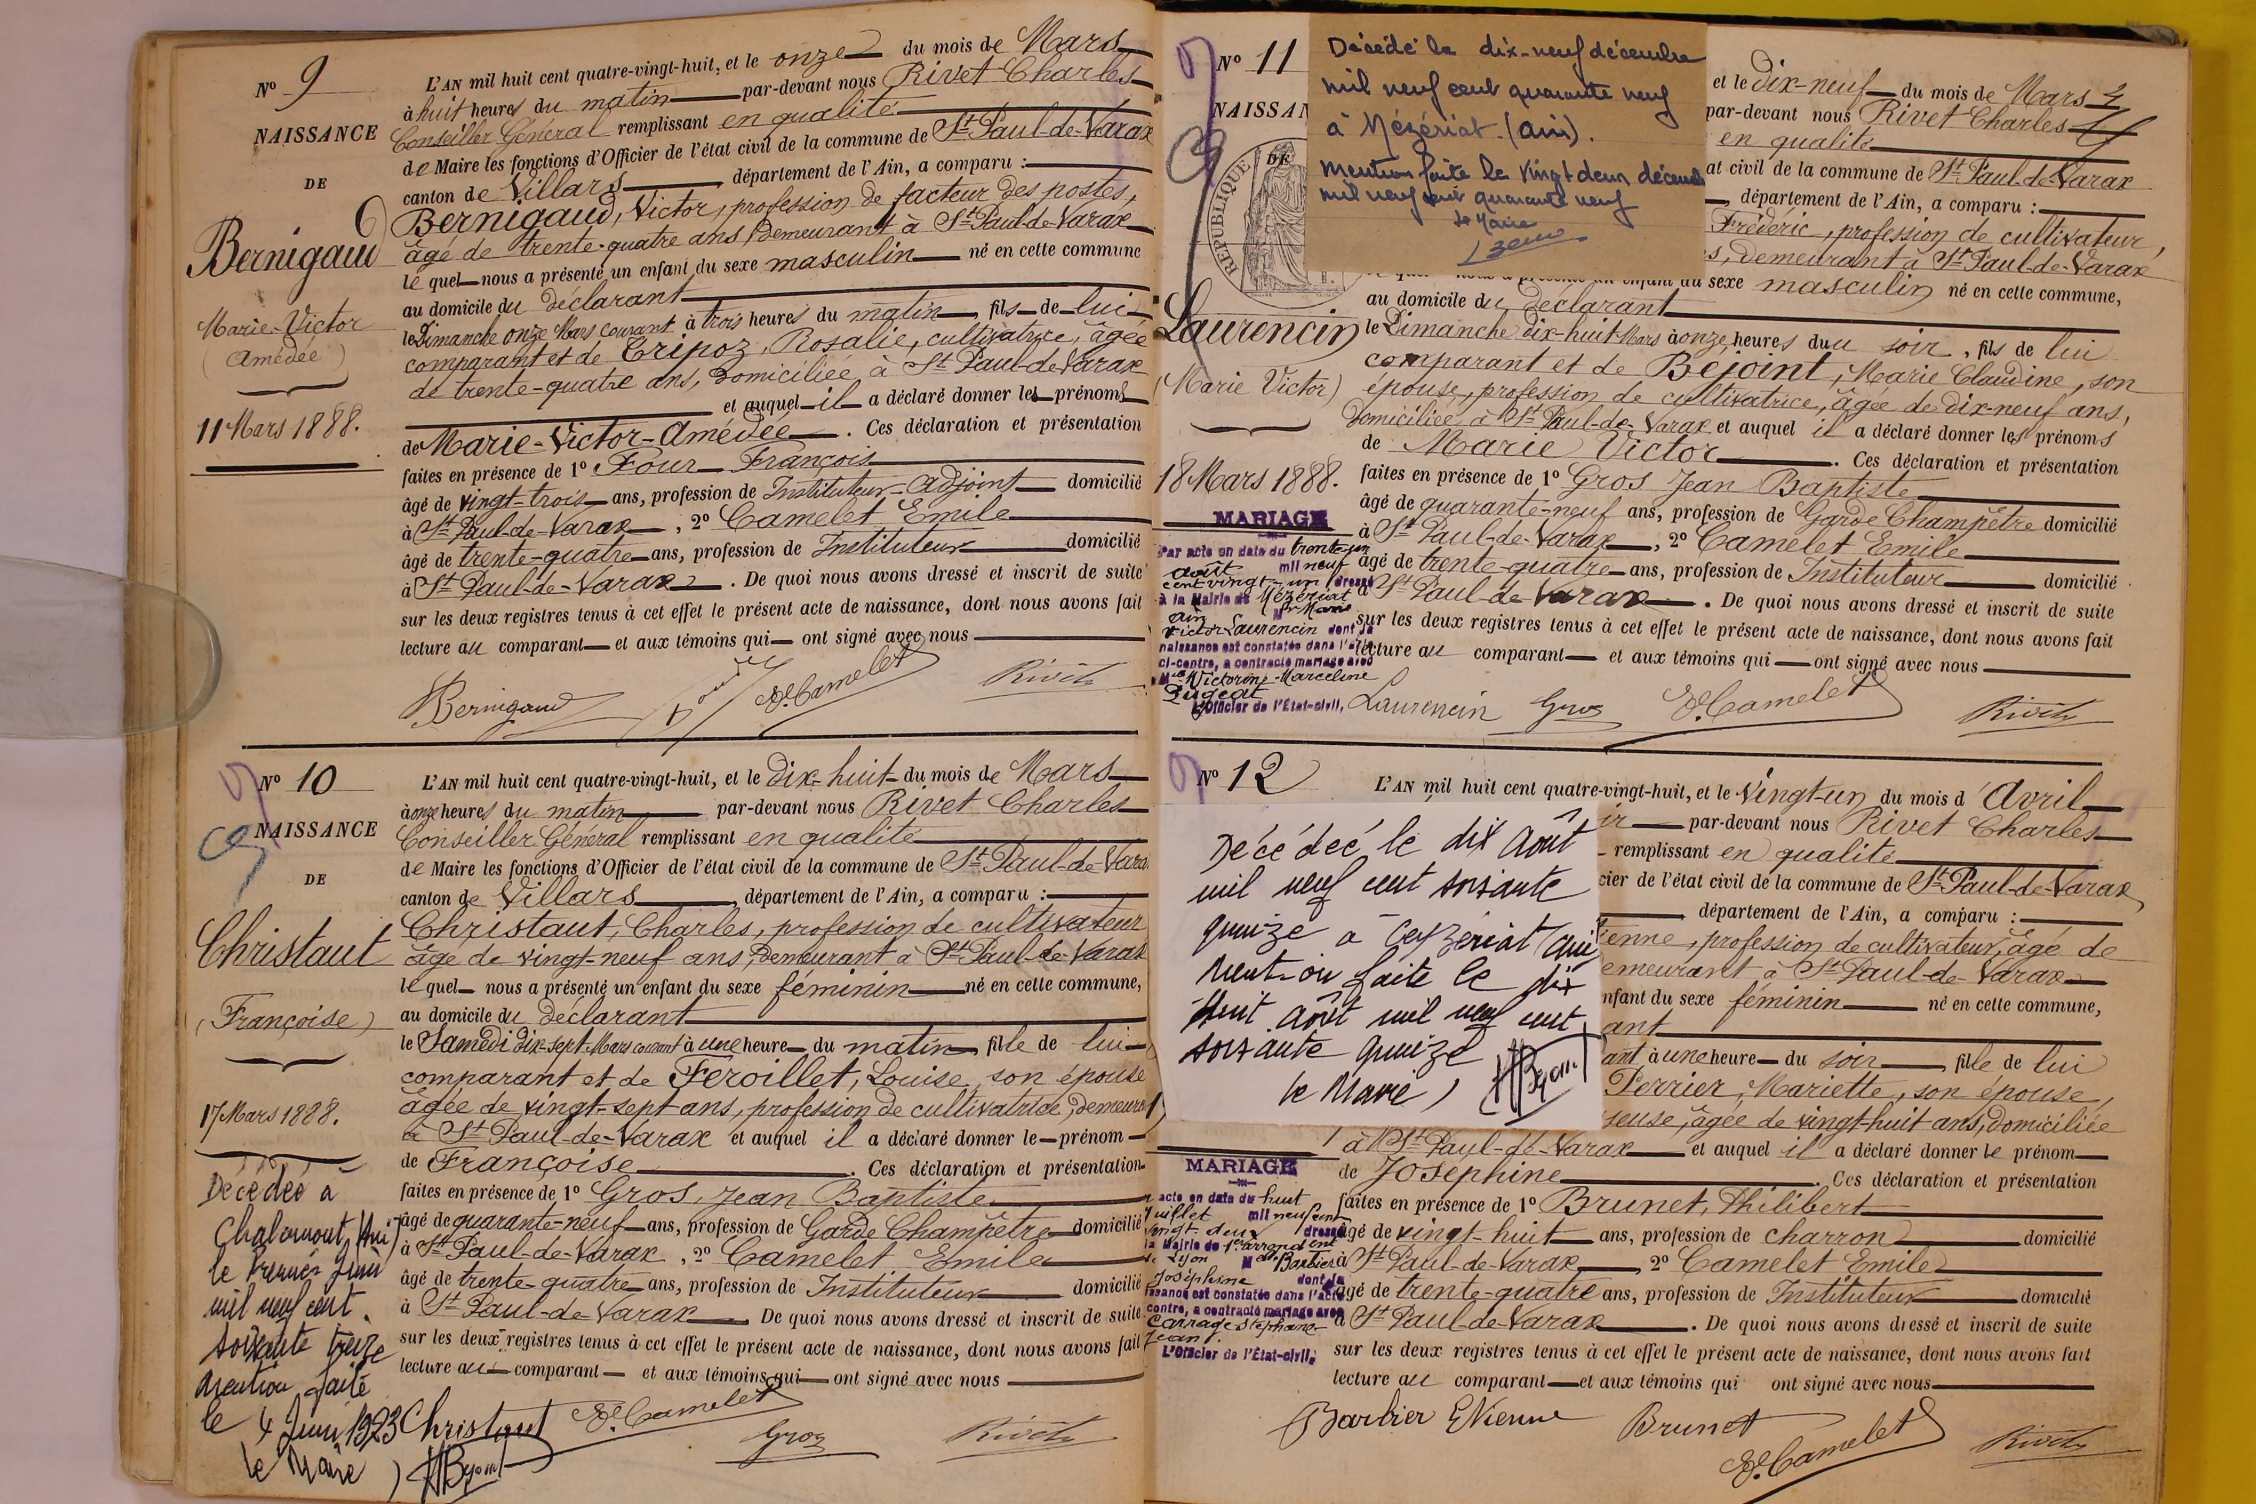 Nº 9
NAISSANCE
DE
Bernigaud
Marie-Victor
(Amédée)
11 Mars 1888.
L'AN mil huit cent quatre-vingt-huit, et le onze du mois de Mars
à huit heures du matin par-devant nous Rivet Charles
Conseiller Général remplissant en qualité
de Maire les fonctions d'Officier de l'état civil de la commune de St Paul-de-Varax
canton de Villars, département de l'Ain, a comparu :
Bernigaud, Victor, profession de facteur des postes,
âgé de trente-quatre ans, demeurant à St Paul-de-Varax
le quel nous a présenté un enfant du sexe masculin né en cette commune
au domicile du déclarant
le Dimanche onze Mars courant à trois heures du matin, fils de lui
comparant et de Tripoz, Rosalie, cultivatrice, âgée
de trente-quatre ans, domiciliée à St Paul-de-Varax
et auquel il a déclaré donner les prénoms
de Marie-Victor-Amédée. Ces déclaration et présentation
faites en présence de 1º Four François
âgé de vingt-trois ans, profession de Instituteur-Adjoint domicilié
à St Paul-de-Varax, 2º Camelet Emile
âgé de trente-quatre ans, profession de Instituteur domicilié
à St Paul-de-Varax. De quoi nous avons dressé et inscrit de suite
sur les deux registres tenus à cet effet le présent acte de naissance, dont nous avons fait
lecture au comparant et aux témoins qui ont signé avec nous
Bernigaud Four E. Camelet Rivet
Nº 10
NAISSANCE
DE
Christaut
(Françoise)
17 Mars 1888.
Décédée à
Chalamont (Ain)
le Premier Juin
mil neuf cent
soixante treize
Mention faite
le 4 Juin 1973
le Maire
L'AN mil huit cent quatre-vingt-huit, et le dix-huit du mois de Mars
à onze heures du matin par-devant nous Rivet Charles
Conseiller Général remplissant en qualité
de Maire les fonctions d'Officier de l'état civil de la commune de St Paul-de-Vara
canton de Villars, département de l'Ain, a comparu :
Christaut, Charles, profession de cultivateur
âgé de vingt-neuf ans, demeurant à St Paul-de-Varax
le quel nous a présenté un enfant du sexe féminin né en cette commune,
au domicile du déclarant
le Samedi dix-sept Mars courant à une heure du matin, fille de lui
comparant et de Feroillet, Louise, son épouse
âgée de vingt-sept ans, profession de cultivatrice, demeurant
à St Paul-de-Varax et auquel il a déclaré donner le prénom
de Françoise. Ces déclaration et présentation
faites en présence de 1º Gros, Jean Baptiste
âgé de quarante-neuf ans, profession de Garde Champêtre domicilié
à St Paul-de-Varax, 2º Camelet Emile
âgé de trente-quatre ans, profession de Instituteur domicilié
à St Paul-de-Varax. De quoi nous avons dressé et inscrit de suite
sur les deux registres tenus à cet effet le présent acte de naissance, dont nous avons fait
lecture au comparant et aux témoins qui ont signé avec nous
Christaut E. Camelet Gros Rivet
Nº 11
NAISSAN
RÉPUBLIQUE
DE
Laurencin
(Marie Victor)
18 Mars 1888.
Décédé le dix-neuf décembre
mil neuf cent quarante neuf
à Mézériat (Ain).
Mention faite le vingt deux décembre
mil neuf cent quarante neuf
Le Maire
et le dix-neuf du mois de Mars
par-devant nous Rivet Charles
en qualité
at civil de la commune de St Paul-de-Varax
, département de l'Ain, a comparu :
Frédéric, profession de cultivateur,
s, demeurant à St Paul-de-Varax
sexe masculin né en cette commune,
au domicile du déclarant
le Dimanche dix-huit Mars à onze heures du soir, fils de lui
comparant et de Bejoint, Marie Claudine, son
épouse, profession de cultivatrice, âgée de dix-neuf ans,
Domiciliée à St Paul-de-Varax et auquel il a déclaré donner les prénoms
de Marie Victor. Ces déclaration et présentation
faites en présence de 1º Gros Jean Baptiste
âgé de quarante-neuf ans, profession de Garde Champêtre domicilié
à St Paul-de-Varax, 2º Camelet Emile
âgé de trente-quatre ans, profession de Instituteur domicilié
à St Paul-de-Varax. De quoi nous avons dressé et inscrit de suite
sur les deux registres tenus à cet effet le présent acte de naissance, dont nous avons fait
lecture au comparant et aux témoins qui ont signé avec nous
Laurencin Gros E. Camelet Rivet
MARIAGE
Par acte en date du trente-un
août mil neuf
cent vingt-un dressé
à la Mairie de Mézériat
Ain Mr Marie
Victor Laurencin dont la
naissance est constatée dans l'acte
ci-contre, a contracté mariage avec
Mlle Victorine-Marceline
Pugeat
L'Officier de l'État-civil,
Nº 12
Décédée le dix Août
mil neuf cent soixante
quinze à Ceyzériat (Ain
Mention faite le dix
huit août mil neuf cent
soixante quinze
le Maire
L'AN mil huit cent quatre-vingt-huit, et le vingt-un du mois d'Avril
ir par-devant nous Rivet Charles
remplissant en qualité
cier de l'état civil de la commune de St Paul-de-Varax
département de l'Ain, a comparu :
ienne, profession de cultivateur, âgé de
emeurant à St Paul-de-Varax
nfant du sexe féminin né en cette commune,
ant
ant à une heure du soir, fille de lui
Perrier, Mariette, son épouse,
euse, âgée de vingt-huit ans, domiciliée
à St Paul-de-Varax et auquel il a déclaré donner le prénom
de Joséphine. Ces déclaration et présentation
faites en présence de 1º Brunet, Philibert
âgé de vingt-huit ans, profession de charron domicilié
à St Paul-de-Varax, 2º Camelet Emile
âgé de trente-quatre ans, profession de Instituteur domicilié
à St Paul-de-Varax. De quoi nous avons dressé et inscrit de suite
sur les deux registres tenus à cet effet le présent acte de naissance, dont nous avons fait
lecture au comparant et aux témoins qui ont signé avec nous
Barbier Etienne Brunet E. Camelet Rivet
MARIAGE
acte en date du huit
Juillet mil neuf cent
vingt-deux dressé
la Mairie de 1er arrondent
de Lyon Barbier
Joséphine dont la
issance est constatée dans l'acte
contre, a contracté mariage avec
Carrage Stéphane
Jean
L'Officier de l'État-civil,